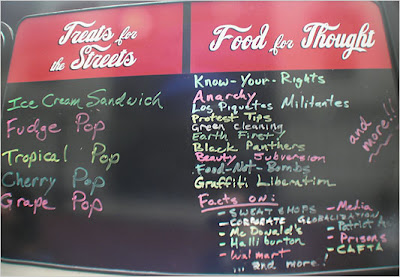 Treats for
the Streets
Ice Cream Sandwich
Fudge Pop
Tropical Pop
Cherry Pop
Grape Pop
Food for Thought
Know-Your-Rights
Anarchy
Los Piquetas Militantes
Protest Tips
Green Cleaning
Earth First!
Black Panthers
Beauty Subversion
Food-Not-Bombs
Graffiti Liberation
and more!!
Facts on:
- SWEAT SHOPS
- CORPORATE GLOBALIZATION
- McDonald's
- Halliburton
- Walmart
... and more!
- Media
- Patriot
- Prisons
- CAFTA